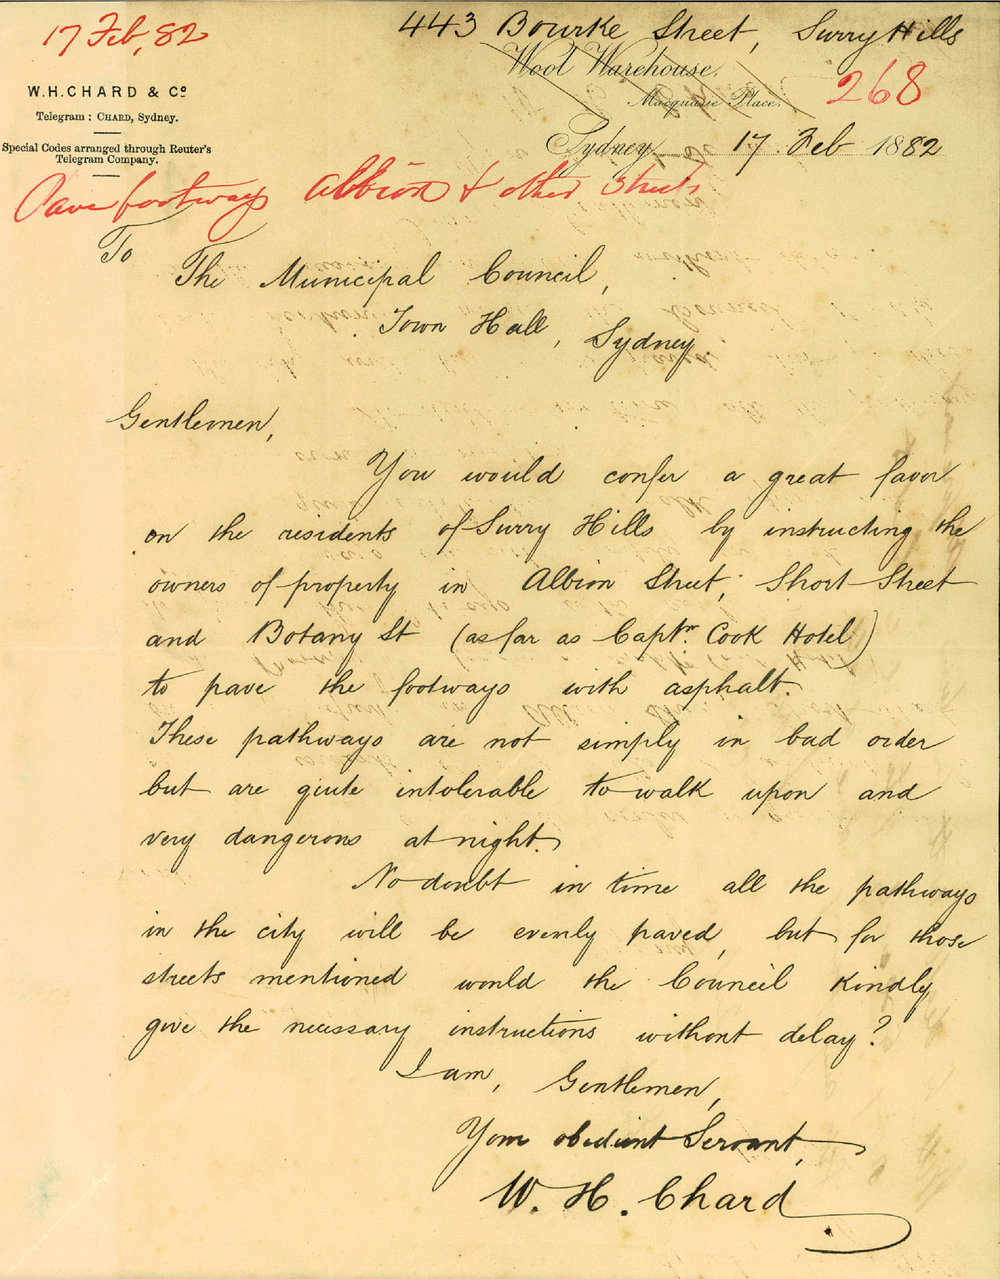 17 Feb, 82
443 Bourke Street, Surry Hills
Wool Warehouse.
W.H.CHARD & Co.
Macquarie Place.
268
Telegram: CHARD, Sydney.
Sydney 17 Feb 1882
Special Codes arranged through Reuter's
Telegram Company.
Pave footways Albion & other Streets
To
The Municipal Council,
Town Hall, Sydney.
Gentlemen,
You would confer a great favor
on the residents of Surry Hills by instructing the
owners of property in Albion Street, Short Street
and Botany St (as far as Captn. Cook Hotel)
to pave the footways with asphalt.
These pathways are not simply in bad order
but are quite intolerable to walk upon and
very dangerous at night.
No doubt in time all the pathways
in the city will be evenly paved, but for those
streets mentioned would the Council kindly
give the necessary instructions without delay?
I am, Gentlemen,
Your obedient Servant,
W. H. Chard